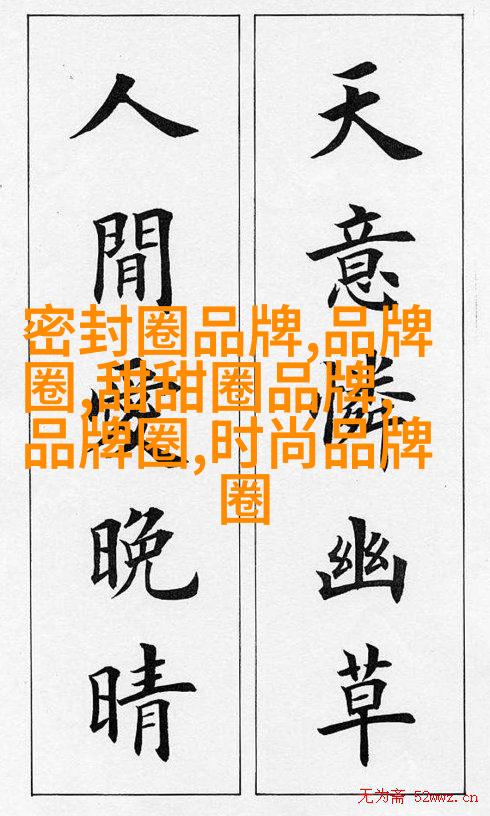 天意憐幽草
人間愛晚晴
密封圈品牌,品牌
圈,甜甜圈品牌,
品牌圈,时尚品牌
圈
无为斋 52wwz.cn